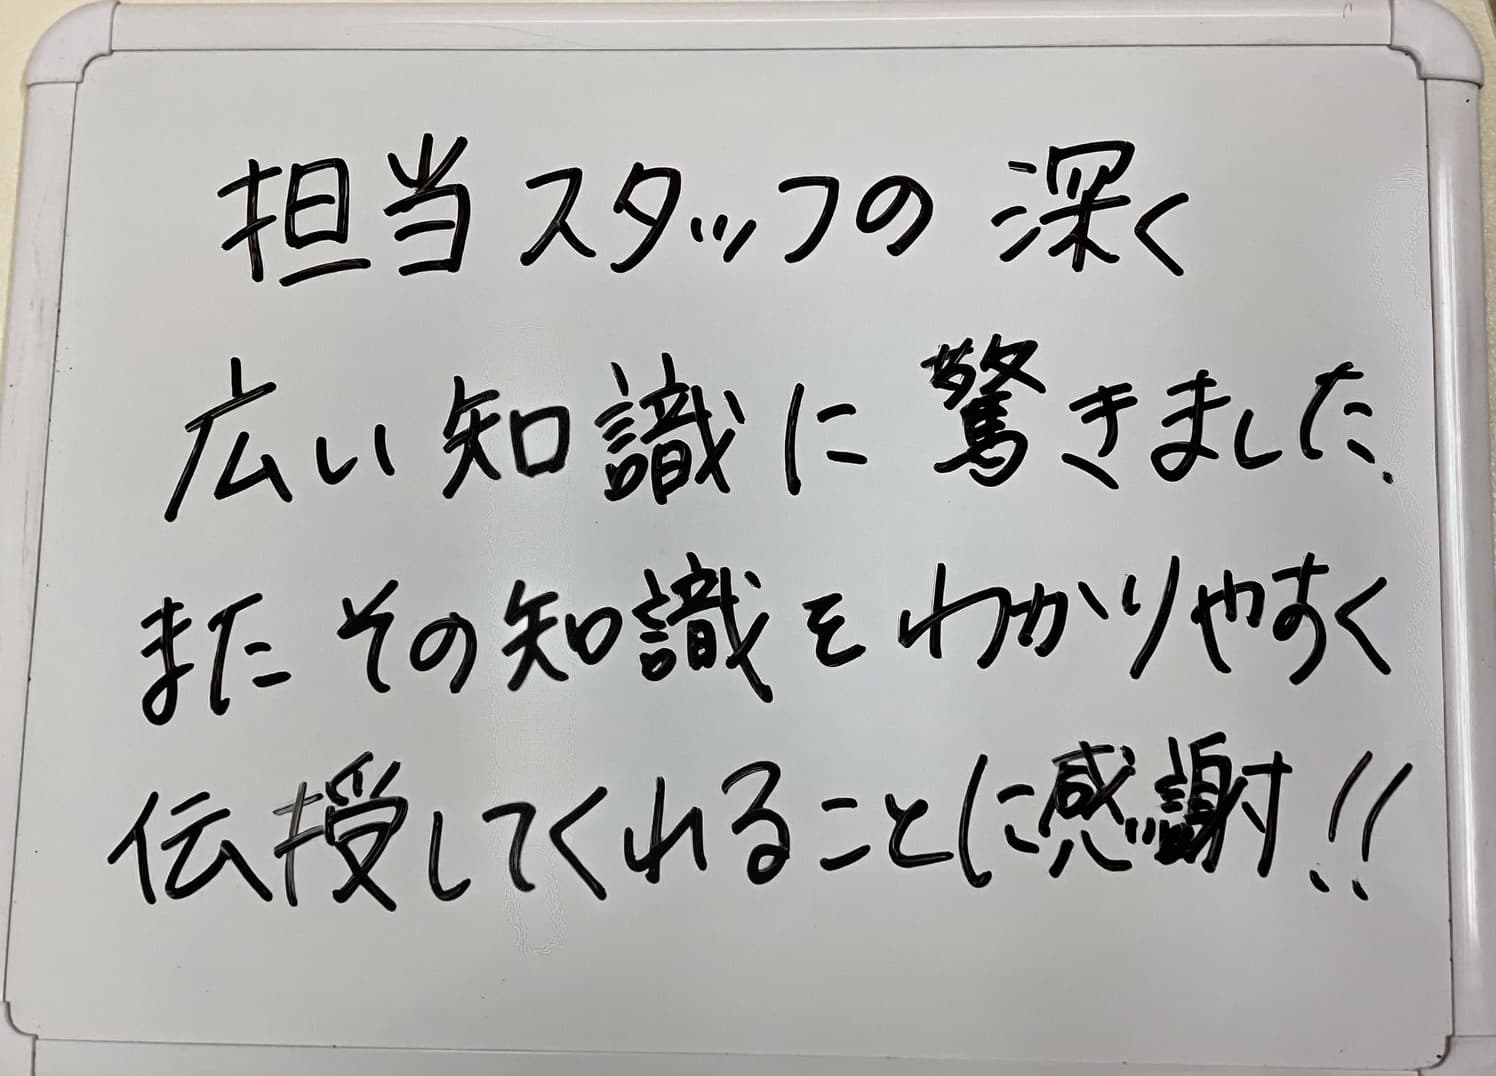 担当スタッフの深く
広い知識に驚きました.
またその知識をわかりやすく
伝授してくれることに感謝!!